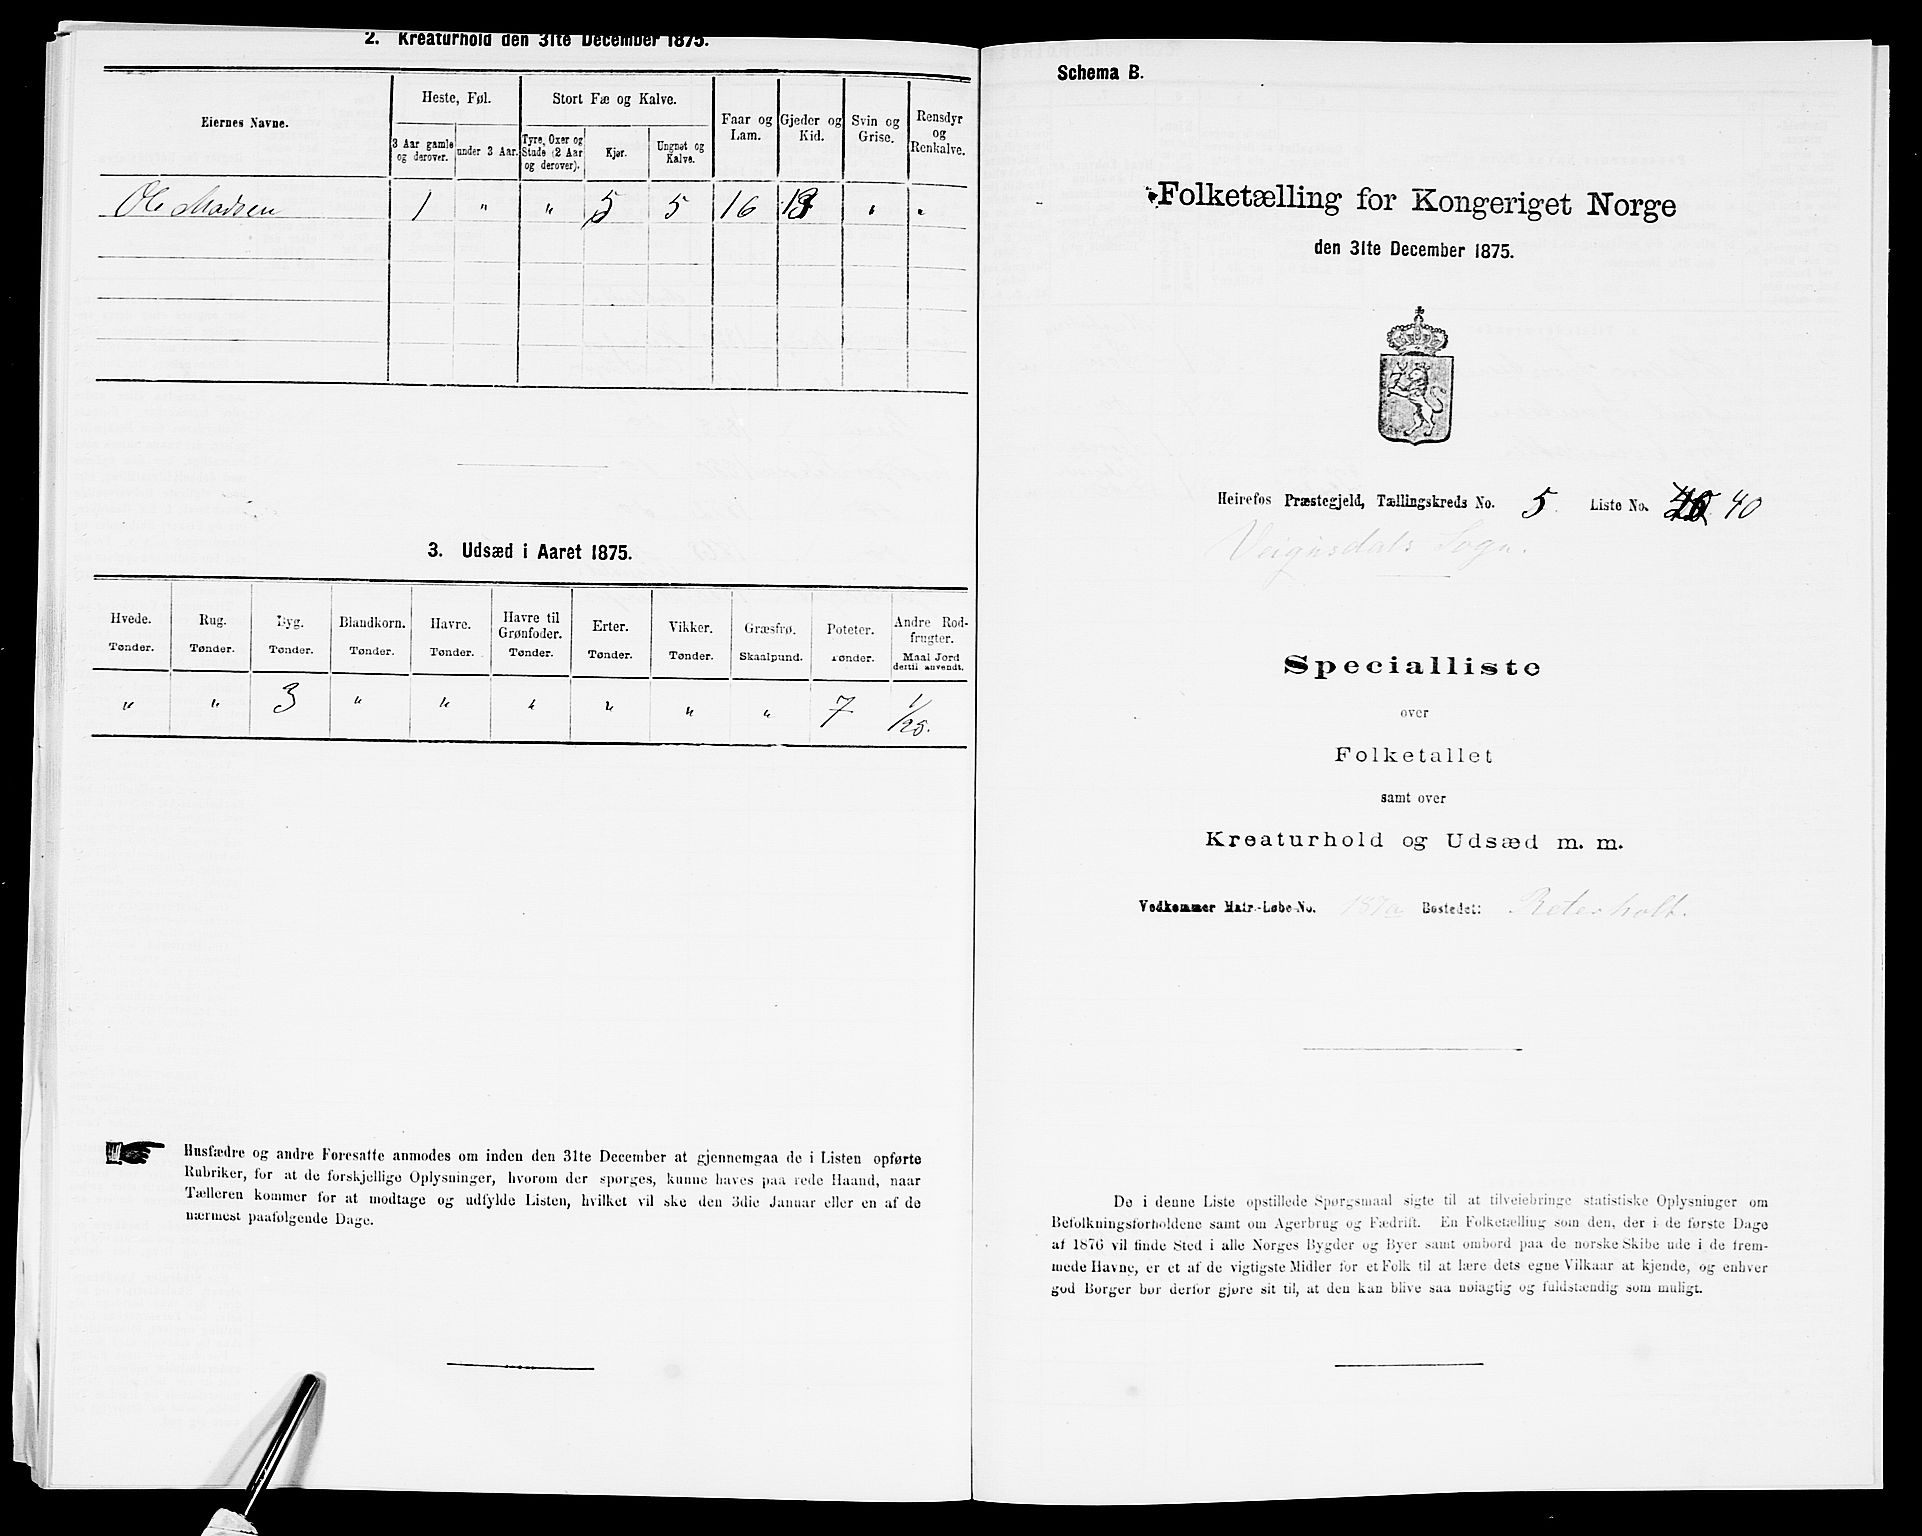 2. Kreaturhold den 31te December 1875.
Eiernes Navne.
Heste, Føl.
3 Aar gamle og derover.
under 3 Aar.
Stort Fæ og Kalve.
Tyre, Oxer og Stude (2 Aar og derover).
Kjør.
Ungnøt og Kalve.
Faar og Lam.
Gjeder og Kid.
Svin og Grise.
Rensdyr og Renkalve.
Ole Madsen 1 " " 5 5 16 " "
3. Udsæd i Aaret 1875.
Hvede. Tønder.
Rug. Tønder.
Byg. Tønder.
Blandkorn. Tønder.
Havre. Tønder.
Havre til Grønfoder. Tønder.
Erter. Tønder.
Vikker. Tønder.
Græsfrø. Skaalpund.
Poteter. Tønder.
Andre Rodfrugter. Maal Jord dertil anvendt.
" " 3 " " " " " " 7 1/25.
Husfædre og andre Foresatte anmodes om inden den 31te December at gjennemgaa de i Listen opførte
Rubriker, for at de forskjellige Oplysninger, hvorom der spørges, kunne haves paa rede Haand, naar
Tælleren kommer for at modtage og udfylde Listen, hvilket vil ske den 3die Januar eller en af de
nærmest paafølgende Dage.
Schema B.
Folketælling for Kongeriget Norge
den 31te December 1875.
Heirefos Præstegjeld, Tællingskreds No. 5. Liste No. 40
Veigusdals Sogn.
Specialliste
over
Folketallet
samt over
Kreaturhold og Udsæd m. m.
Vedkommer Matr.-Løbe-No. 187a Bostedet: Reterholt.
De i denne Liste opstillede Spørgsmaal sigte til at tilveiebringe statistiske Oplysninger om
Befolkningsforholdene samt om Agerbrug og Fædrift. En Folketælling som den, der i de første Dage
af 1876 vil finde Sted i alle Norges Bygder og Byer samt ombord paa de norske Skibe ude i de frem-
mede Havne, er et af de vigtigste Midler for et Folk til at lære dets egne Vilkaar at kjende, og enhver
god Borger bør derfor gjøre sit til, at den kan blive saa nøiagtig og fuldstændig som muligt.